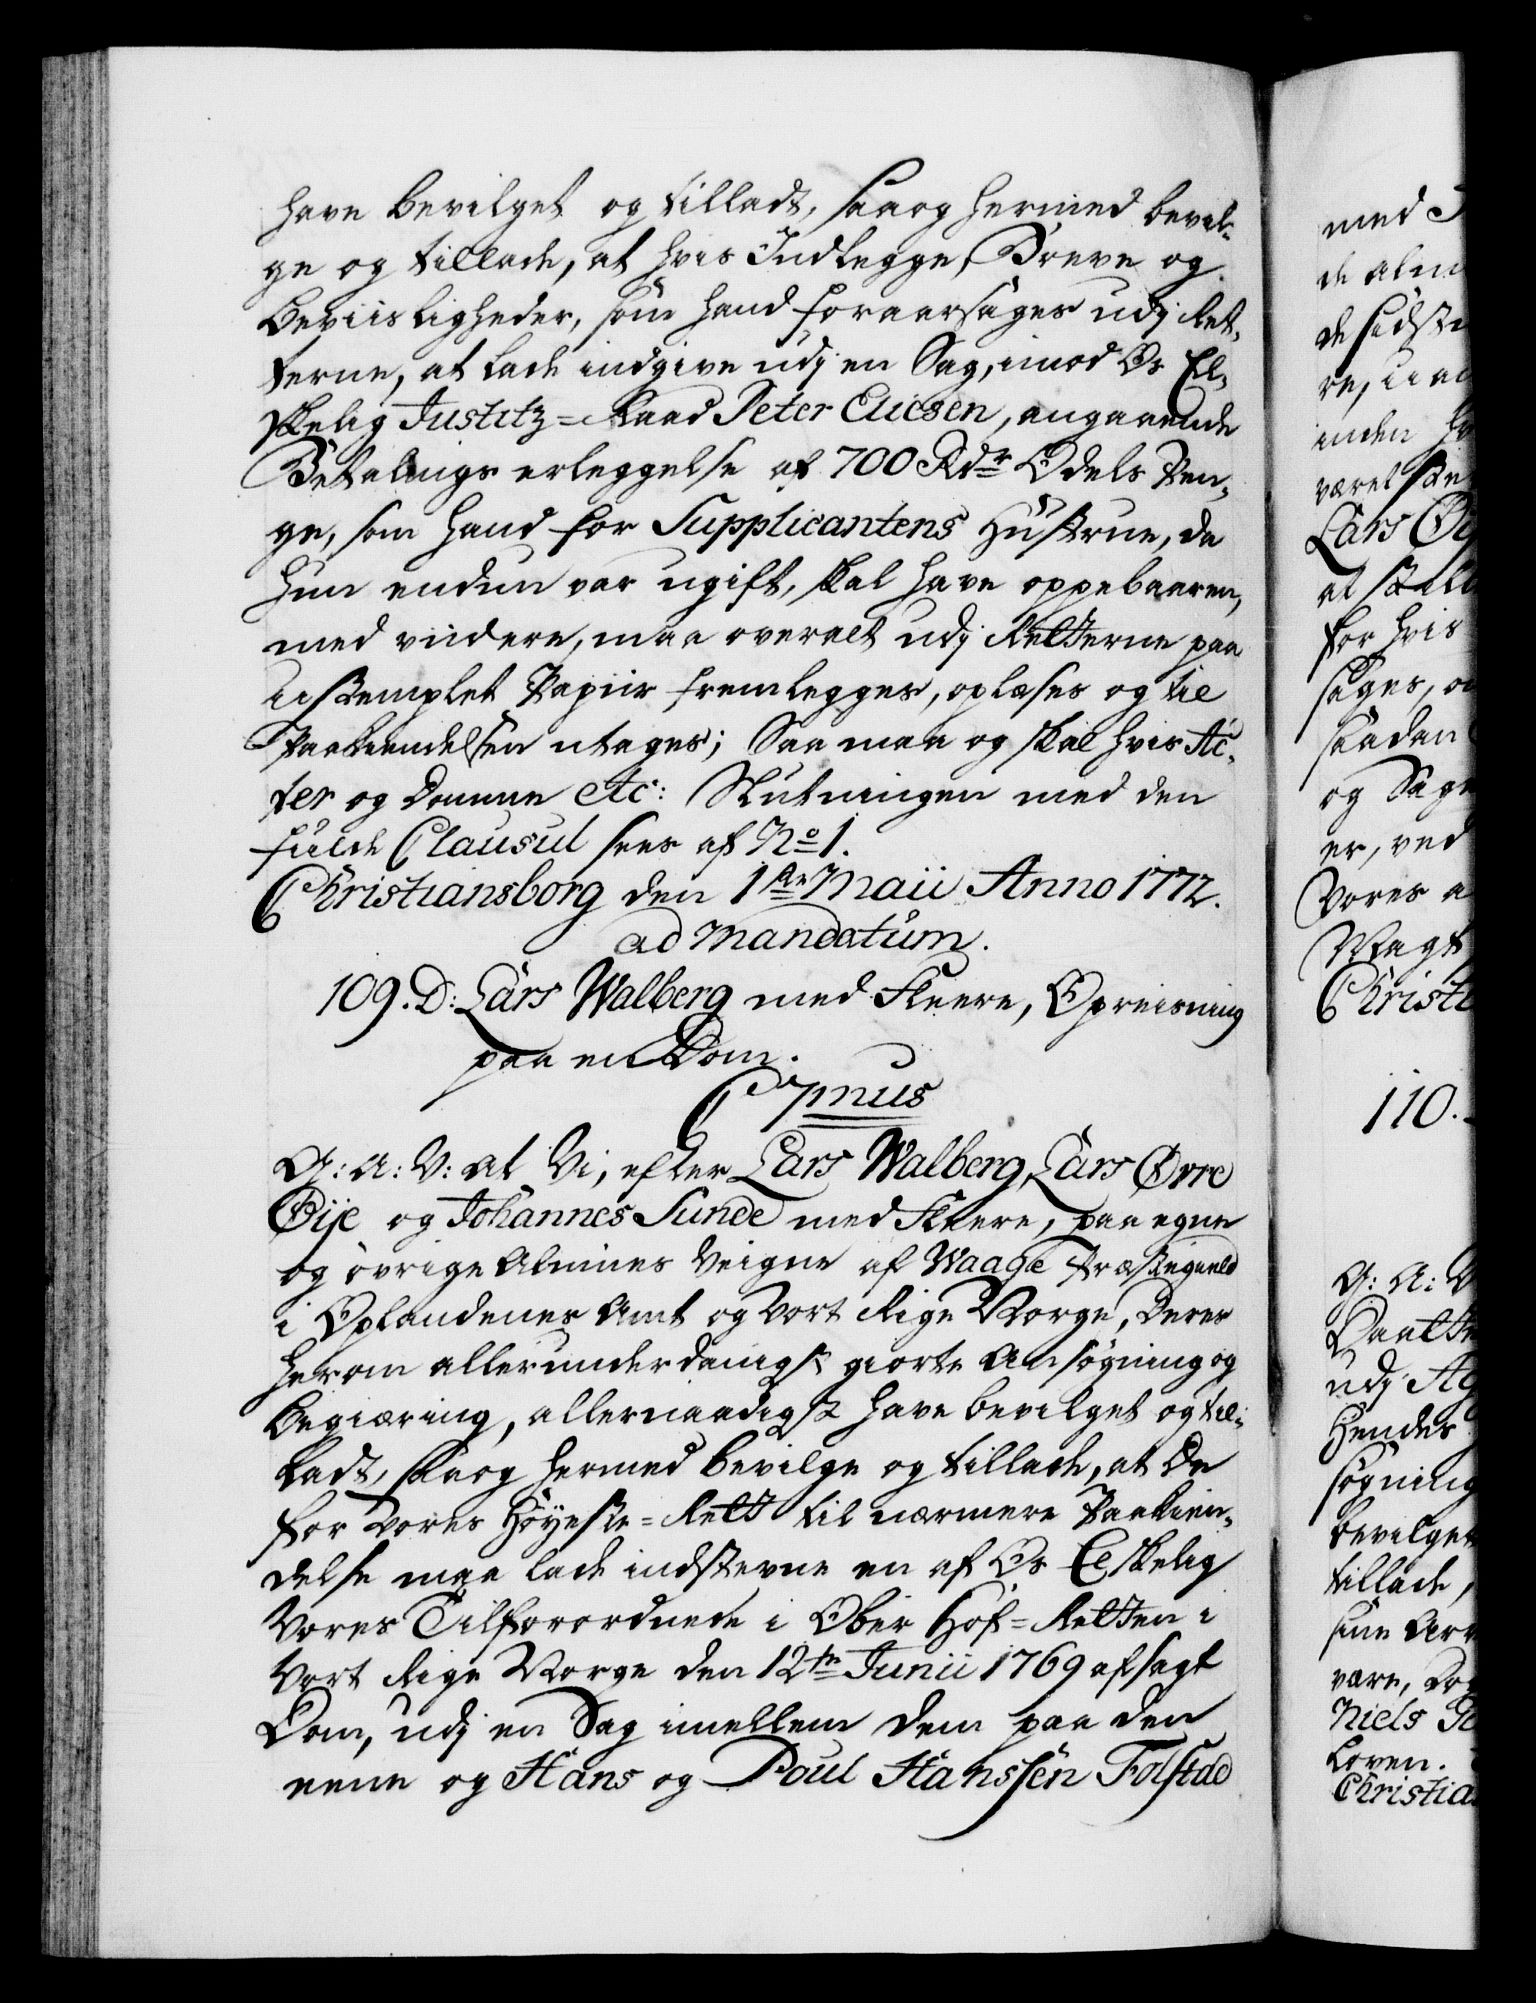 have bevilget og tilladt, saa og hermed bevil-
ge og tillade, at hvis Indlegge, Breve og
Beviisligheder, som hand foraarsages udj Ret-
terne, at lade indgive udj en Sag, imod Os El-
skelig Justitz=Raad Peter Elicsen, angaaende
Betalings erleggelse af 700 Rdr Odels Pen-
ge, som hand for Supplicantens Hustrue, da
hun endnu var ugift, skal have oppebaaren,
med viidere, maa overalt udj Retterne paa
ustemplet Papiir fremlegges, oplæses og til
Paakiendelsen antages; Saa maa og skal hvis Ac-
ter og Domme etc: Slutningen med den
fulde Clausul sees af No 1.
Christiansborg den 1ste Maii Anno 1772.
ad Mandatum.
109. D: Lars Walberg med Fleere, Opreisning
paa en Dom.
C 7mus
G: A: V: at Vi, efter Lars Walberg, Lars Øvre
Øije og Johannes Sunde med Fleere, paa egne
og øvrige Almues Veigne af Waage Præstegield
i Oplandenes Amt og Vort Rige Norge, Deres
herom allerunderdanigst giorte Ansøgning og
Begiæring, allernaadigst have bevilget og til-
ladt, saa og hermed bevilge og tillade, at De
for Vores Höyeste=Rett til nærmere Paakien-
delse maa lade indstevne en af Os Elskelig
Vores Tilforordnede i Ober Hof=Retten i
Vort Rige Norge den 12te Junii 1769 afsagt
Dom, udj en Sag imellem dem paa den
eene og Hans og Poul Hanssen Folstad
med
de alm
de sidste
re,
inden
været
Lars
at
for hvis
sages,
saadan
og Sage
er, ved
Vores a
Magt
Christi
110.
G: A: V
udj
Hendes
søgning
bevilget
tillade,
sine Arv
være,
Niels
Loven.
Christia